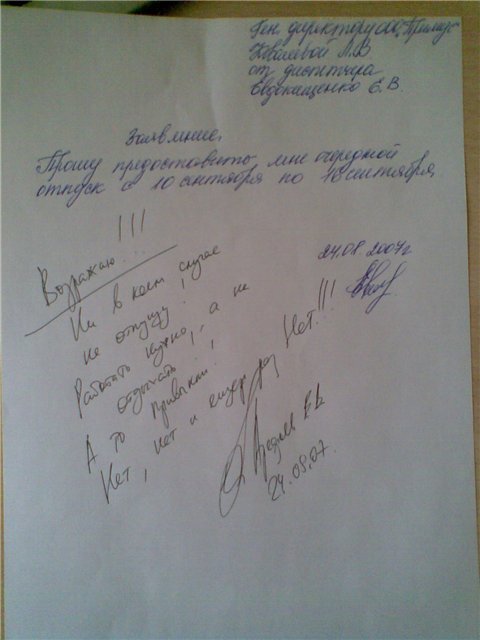 Ген. директору ООО "Примус"
Ковалевой Л.В
от диспетчера
Евдокищенко Е.В.
Заявление.
Прошу предоставить мне очередной
отпуск с 10 сентября по 16 сентября
24.08.2007г
!!!
Возражаю...
Ни в коем случае
не отпущу!
Работать нужно, а не
отдыхать...!
А то привыкли!
Нет, нет и ещё раз Нет!!!
Е.В.
24.08.07.